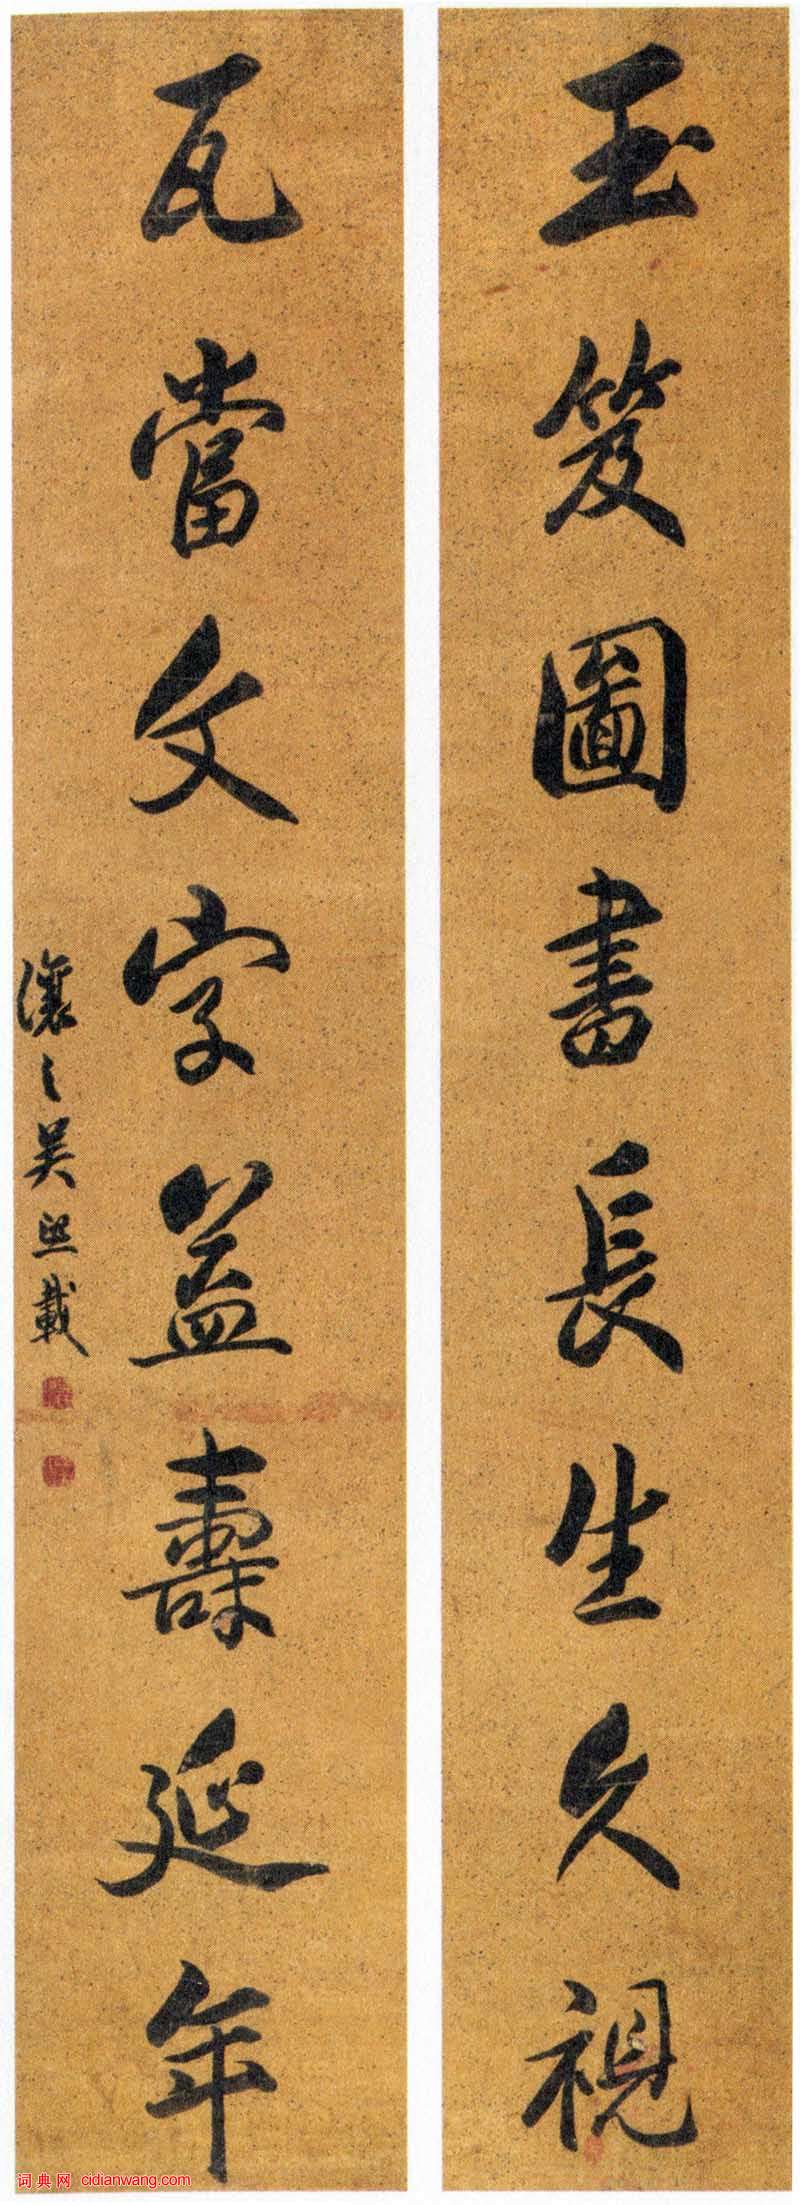 玉笈圖書長生久視
瓦當文字益壽延年
讓之吳熙載
词典网 cidianwang.com